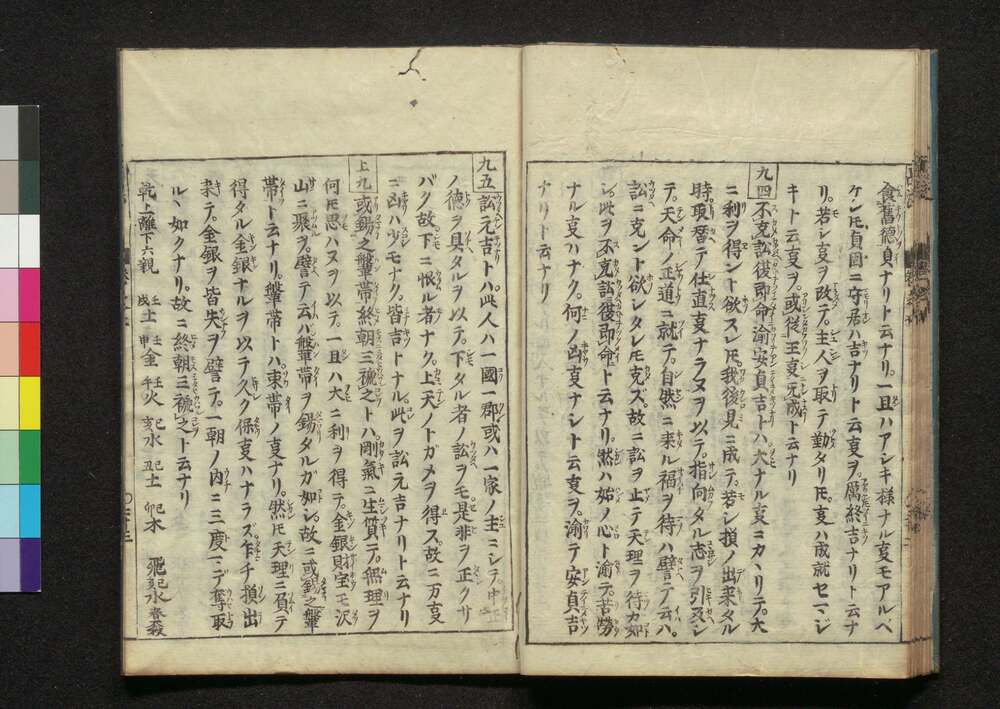 食舊德貞ナリト云ナリ。一旦ハアシキ様ナル叓モアルベ
ケレ𪜈貞固ニ守居ハ吉ナリト云叓ヲ。厲終吉ナリト云ナ
リ。若シ叓ヲ改テ。主人ヲ取テ勤タリ𪜈。叓ハ成就セマジ
キト云叓ヲ。或從王叓无成ト云ナリ
九四 不克訟復即命渝安貞吉トハ大ナル叓ニカヽリテ。大
ニ利ヲ得ント欲スレ𪜈我後見ニ成テ。若シ損ノ出来タル
時。取替テ仕直叓ナラヌヲ以テ。指向タル志ヲ引返シ
テ。天命ノ正道ニ就テ。自然ニ来ル福ヲ待ハ譬テイハヽ。
訟ニ克ント欲レタレ𪜈克ズ。故ニ訟ヲ止テ天理ヲ待カ如
シ此ヲ不克訟復即命ト云ナリ。然ハ始ノ心ト渝テ。苦勞
ナル叓ハナク。何ノ凶叓ナシト云叓ヲ。渝テ安貞ハ吉
ナリト云ナリ
九五 訟元吉トハ。此人ハ一國一郡或ハ一家ノ主ニシテ。中正
ノ德ヲ具タルヲ以テ。下タル者ノ訟ヲモ是非ヲ正クサ
バク故。下ニ恨ル者ナク。上天ノトガメヲ得ス。故ニ万叓
ニ凶ハ少シモナク。皆吉トナル。此ヲ訟元吉ナリト云ナリ
上九 或錫之鞶帯終朝三褫之トハ剛氣ニ生質テ。無理ヲ
何𪜈思ハヌヲ以テ。一旦ハ大ニ利ヲ得テ。金銀財宝モ沢
山ニ聚ヲ。譬テ云ハ鞶帯ヲ錫タルガ如シ。故ニ或錫之鞶
帯ト云ナリ。鞶帯トハ。束帯ノ叓ナリ。然𪜈天理ニ負テ
得タル金銀ナルヲ以テ久ク保叓ハナラズ。乍チ損出
来テ。金銀ヲ皆失ヲ譬テ。一朝ノ内ニ三度マデ奪取
ルヽ如クナリ。故ニ終朝三褫之ト云ナリ
乾上離下六親 壬戌土 壬申金 壬午火 己亥水 己丑土 己卯木